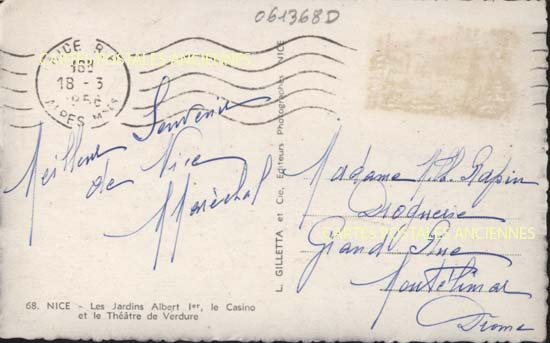 061368D
NICE R.P.
18H
18 - 3
1956
ALPES Mmes
CARTES POSTALES ANCIENNES
Meilleur Souvenir
de Nice
Maréchal
L. GILLETTA et Cie, Editeurs Photographes NICE
Madame Papin
Droguerie
CARTES POSTALES ANCIENNES
Grand Rue
Montélimar
Drome
68. NICE - Les Jardins Albert Ier, le Casino
et le Théâtre de Verdure